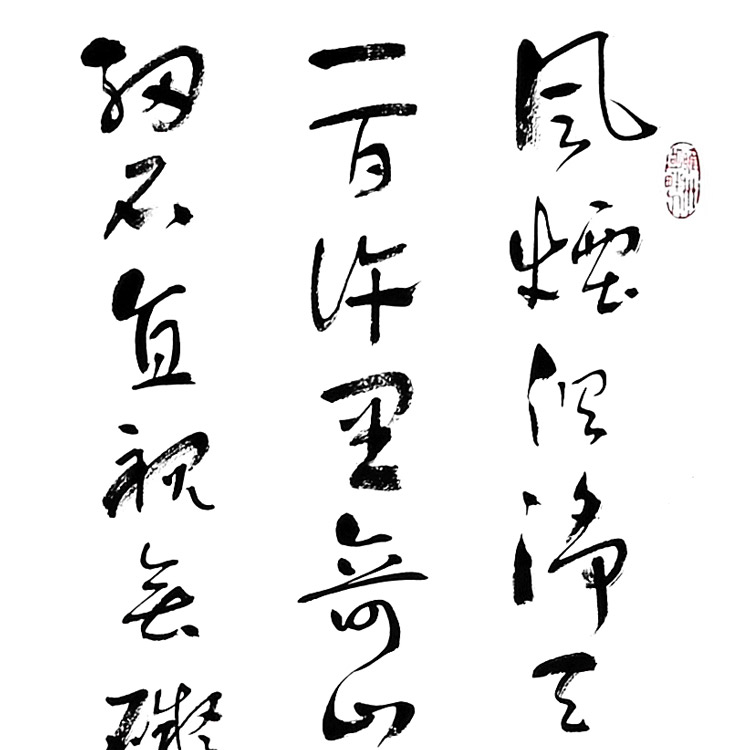 風煙俱淨天
一百許里奇山
細石直視無礙